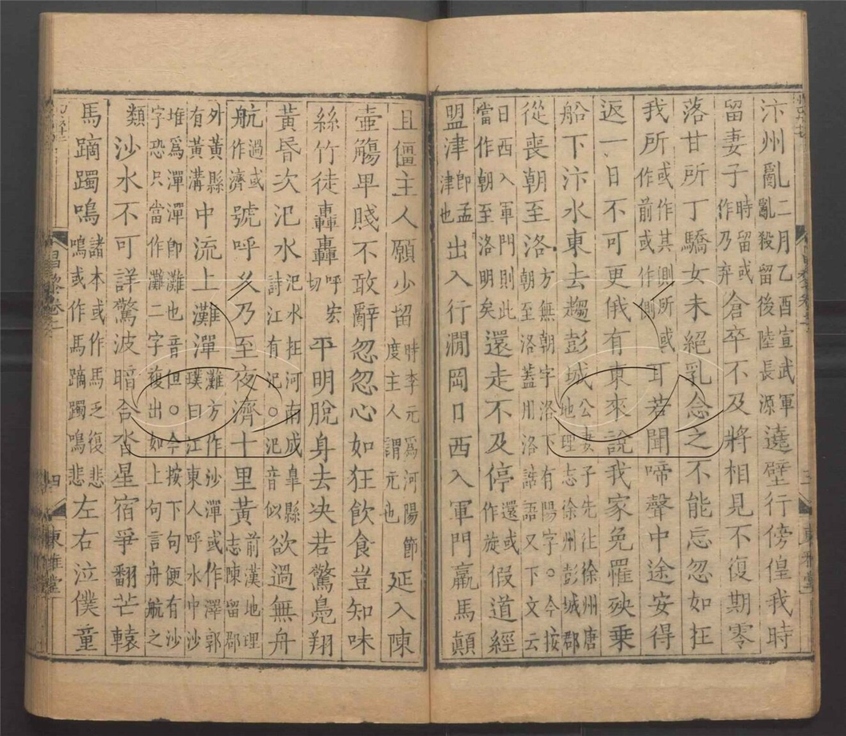 汴州亂二月乙酉宣武軍亂殺留後陸長源遶壁行傍偟我時
留妻子時留或作乃弃倉卒不及將相見不復期零
落甘所丁驕女未絕乳念之不能忘忽如在
我所或作其側所或作前或作側耳若聞啼聲中途安得
返一日不可更俄有東來說我家免罹殃乗
船下汴水東去趨彭城公妻子先往徐州唐地理志徐州彭城郡
從喪朝至洛方無朝字洛下有陽字○今按朝至洛蓋用洛誥語又下文云
日西入軍門則此當作朝至洛明矣還走不及停還或作旋假道經
盟津即孟津也出入行澗岡日西入軍門羸馬顛
且僵主人願少留時李元為河陽節度主人謂元也延入陳
壷觴卑賤不敢辭忽忽心如狂飲食豈知味
絲竹徒轟轟呼宏切平明脫身去决若驚鳧翔
黃昏次汜水汜水在河南成皐縣詩江有汜○汜音似欲過無舟
航過或作濟號呼乆乃至夜濟十里黃前漢地理志陳留郡
外黃縣有黃溝中流上灘潬灘方作沙潬或作澤郭璞曰江東人呼水中沙
堆為潬潬即灘也音但○今按下句便有沙字恐只當作灘二字複出如上句言舟航之
類沙水不可詳驚波暗合沓星宿爭翻芒轅
馬蹢躅鳴諸本或作馬乏復悲鳴或作馬蹢躅鳴悲左右泣僕童
昌黎卷二
三
東雅堂
昌黎卷二
四
東雅堂